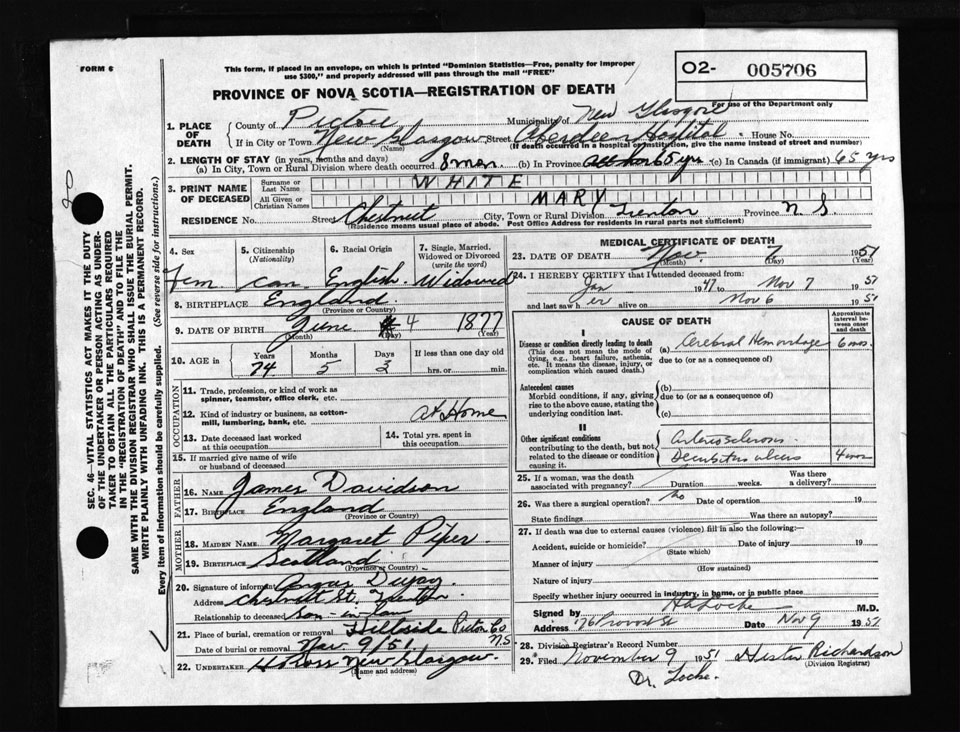 FORM 6
This form, if placed in an envelope, on which is printed "Dominion Statistics—Free, penalty for improper
use $300," and properly addressed will pass through the mail "FREE"
O2- 005706
For use of the Department only
PROVINCE OF NOVA SCOTIA—REGISTRATION OF DEATH
SEC. 46—VITAL STATISTICS ACT MAKES IT THE DUTY
OF THE UNDERTAKER OR PERSON ACTING AS UNDER-
TAKER TO OBTAIN ALL THE PARTICULARS REQUIRED
IN THE "REGISTRATION OF DEATH" AND TO FILE THE
SAME WITH THE DIVISION REGISTRAR WHO SHALL ISSUE THE BURIAL PERMIT.
WRITE PLAINLY WITH UNFADING INK. THIS IS A PERMANENT RECORD.
Every item of information should be carefully supplied. (See reverse side for instructions.)
1. PLACE OF DEATH County of Pictou Municipality of New Glasgow
If in City or Town New Glasgow (Name) Street Aberdeen Hospital House No.
(If death occurred in a hospital or institution, give name instead of street and number)
2. LENGTH OF STAY (in years, months and days)
(a) In City, Town or Rural Division where death occurred 8 mon. (b) In Province 65 yrs (c) In Canada (if immigrant) 65 yrs
3. PRINT NAME OF DECEASED Surname or Last Name WHITE
All Given or Christian Names MARY
RESIDENCE No. Street Chestnut City, Town or Rural Division Trenton Province N.S.
(Residence means usual place of abode. Post Office Address for residents in rural parts not sufficient)
4. Sex Fem.
5. Citizenship (Nationality) Can.
6. Racial Origin English
7. Single, Married, Widowed or Divorced (write the word) Widowed
8. BIRTHPLACE England (Province or Country)
9. DATE OF BIRTH June (Month) 4 (Day) 1877 (Year)
10. AGE IN Years 74 Months 5 Days 3 If less than one day old hrs. or min.
OCCUPATION
11. Trade, profession, or kind of work as spinner, teamster, office clerk, etc.
12. Kind of industry or business, as cotton-mill, lumbering, bank, etc. At Home
13. Date deceased last worked at this occupation
14. Total yrs. spent in this occupation
15. If married give name of wife or husband of deceased
FATHER
16. NAME James Davidson
17. BIRTHPLACE England (Province or Country)
MOTHER
18. MAIDEN NAME Margaret Piper
19. BIRTHPLACE Scotland (Province or Country)
20. Signature of informant Angus
Address Chestnut St. Trenton
Relationship to deceased Son-in-law
21. Place of burial, cremation or removal Hillside Pictou Co N.S.
Date of burial or removal Nov. 9/51
22. UNDERTAKER H Ross New Glasgow.
(Name and address)
MEDICAL CERTIFICATE OF DEATH
23. DATE OF DEATH Nov. (Month) 7 (Day) 1951 (Year)
24. I HEREBY CERTIFY that I attended deceased from:
Jan 1947 to Nov 7 1951
and last saw her alive on Nov 6 1951
CAUSE OF DEATH
Approximate interval between onset and death
I
Disease or condition directly leading to death (a) Cerebral Hemorrhage 6 mos.
(This does not mean the mode of dying, e.g., heart failure, asthenia, etc. It means the disease, injury, or complication which caused death.)
due to (or as a consequence of)
Antecedent causes (b)
Morbid conditions, if any, giving rise to the above cause, stating the underlying condition last.
due to (or as a consequence of)
(c)
II
Other significant conditions contributing to the death, but not related to the disease or condition causing it.
Arteriosclerosis.
Decubitus ulcers 4 mos
25. If a woman, was the death associated with pregnancy? Duration weeks. Was there a delivery?
26. Was there a surgical operation? no Date of operation 19
State findings Was there an autopsy?
27. If death was due to external causes (violence) fill in also the following:—
Accident, suicide or homicide? (State which) Date of injury 19
Manner of injury (How sustained)
Nature of injury
Specify whether injury occurred in industry, in home, or in public place
Signed by Locke M.D.
Address 176 Provost St Date Nov 9 1951
28. Division Registrar's Record Number
29. Filed November 9 1951 Hester Richardson
(Division Registrar)
Dr. Locke.